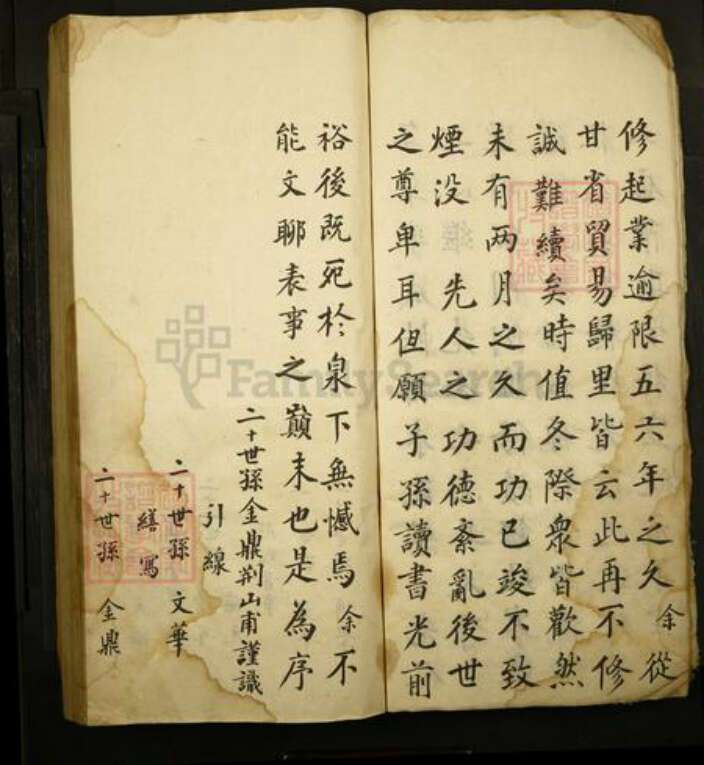 修起業逾限五六年之久余從
甘省貿易歸里皆云此再不修
誠難續矣時值冬際衆皆歡然
未有两月之久而功已竣不致
煙没先人之功德紊亂後世
之尊卑耳但願子孫讀書光前
裕後既死於泉下無憾焉余不
能文聊表事之巔末也是為序
二十世孫金鼎荆山甫謹識
引線
二十世孫文華
繕寫
二十世孫金鼎
FamilySearch